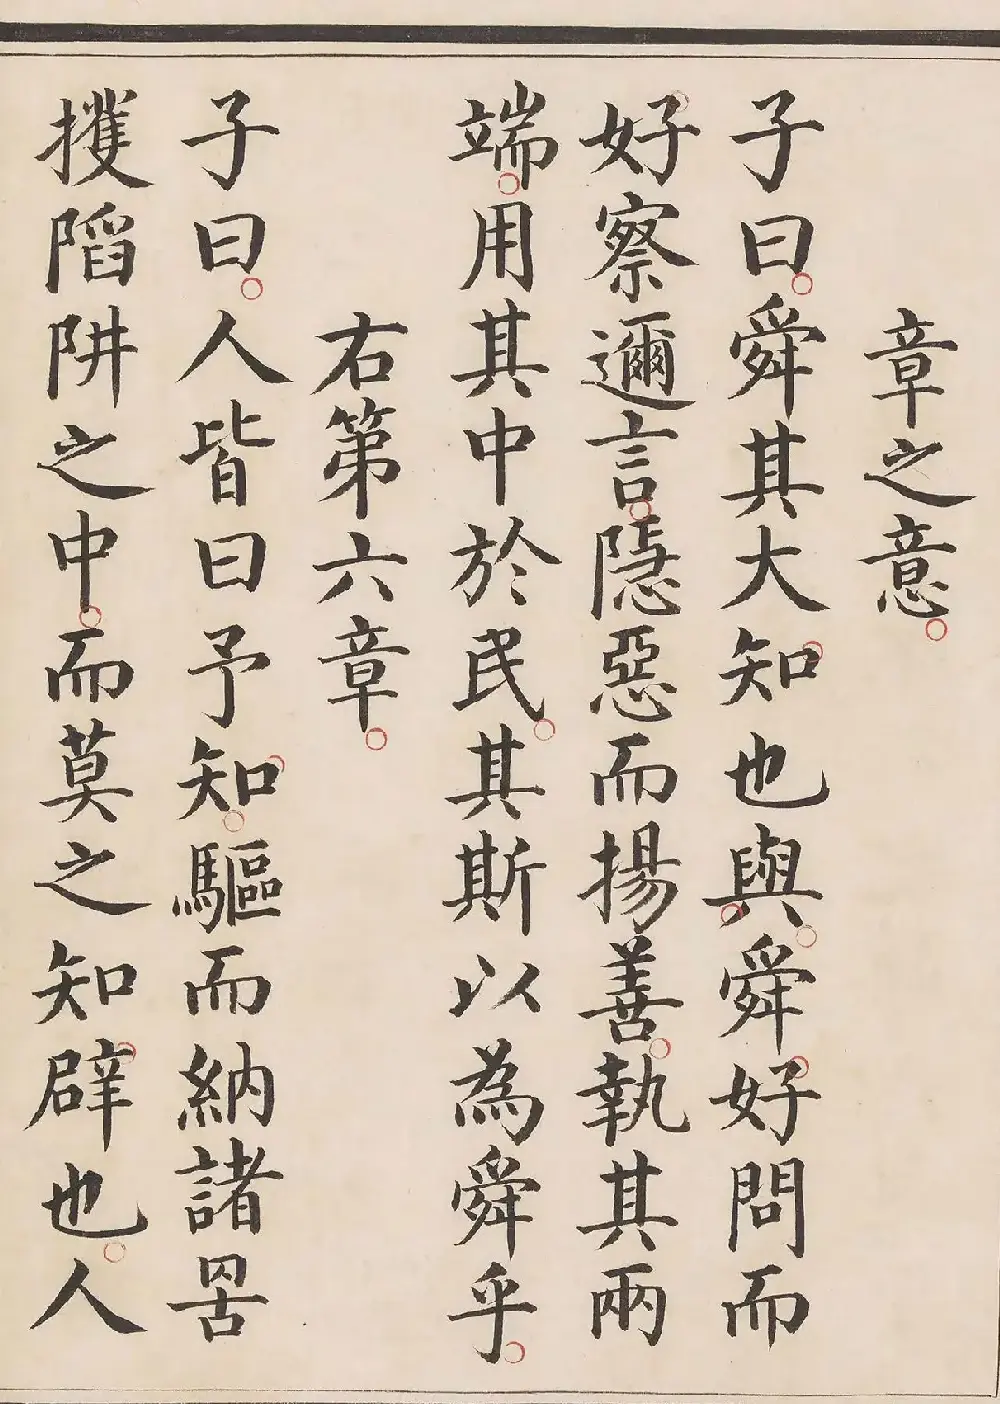 章之意。
子曰。舜其大知也與。舜好問而
好察邇言。隱惡而揚善。執其兩
端。用其中於民。其斯以為舜乎。
右第六章。
子曰。人皆曰予知。驅而納諸罟
擭陷阱之中。而莫之知辟也。人